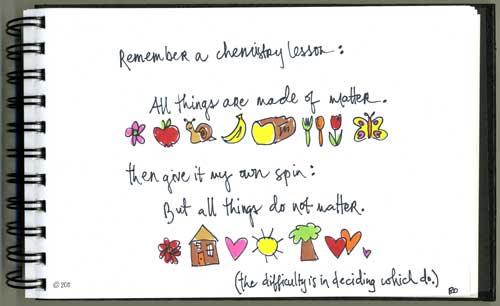 Remember a chemistry lesson:
All things are made of matter.
then give it my own spin:
But all things do not matter.
(the difficulty is in deciding which do.)